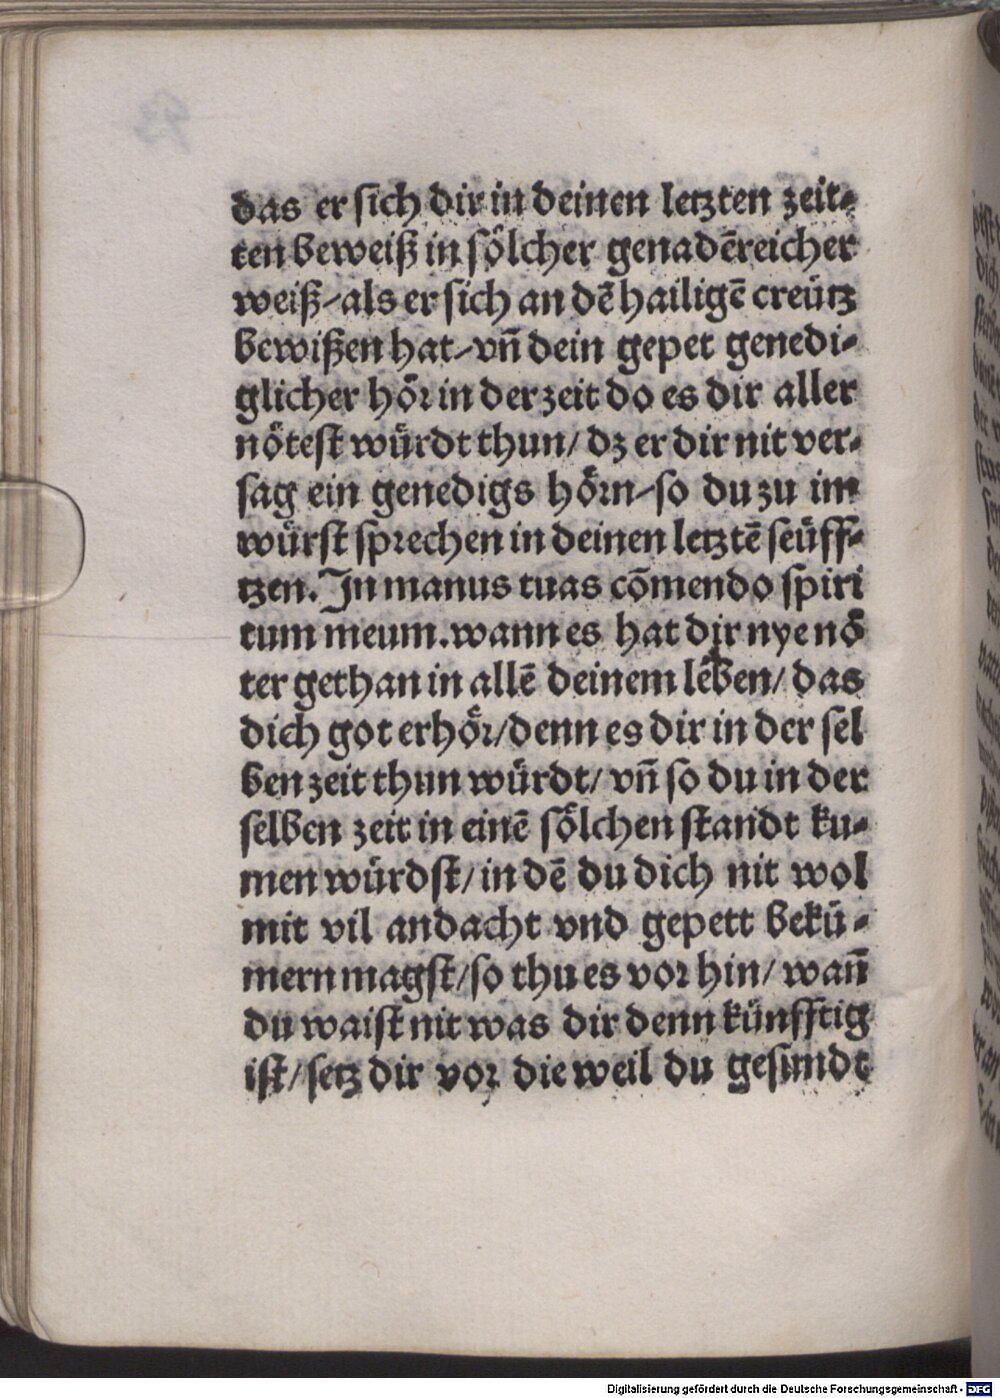 das er sich dir in deinen letzten zeit⸗
ten beweiß in soͤlcher genadēreicher
weiß/als er sich an dē hailigē creuͤtz
bewißen hat/vn̄ dein gepet genedi⸗
glicher hoͤr in der zeit do es dir aller
noͤtest wuͤrdt thun/ dz er dir nit ver⸗
sag ein genedigs hoͤrn/so du zu im
wuͤrst sprechen in deinen letztē seuͤff⸗
tzen. In manus tuas cōmendo spiri
tum meum. wann es hat dir nye noͤ
ter gethan in allē deinem lēben/ das
dich got erhoͤr/denn es dir in der sel
ben zeit thun wuͤrdt/ vn̄ so du in der
selben zeit in einē soͤlchen standt ku⸗
men wuͤrdst/ in dē du dich nit wol
mit vil andacht vnd gepett bekuͤ⸗
mern magst/so thu es vor hin/ wan̄
du waist nit was dir denn kuͤnfftig
ist/ setz dir vor die weil du gesundt
Digitalisierung gefördert durch die Deutsche Forschungsgemeinschaft - DFG